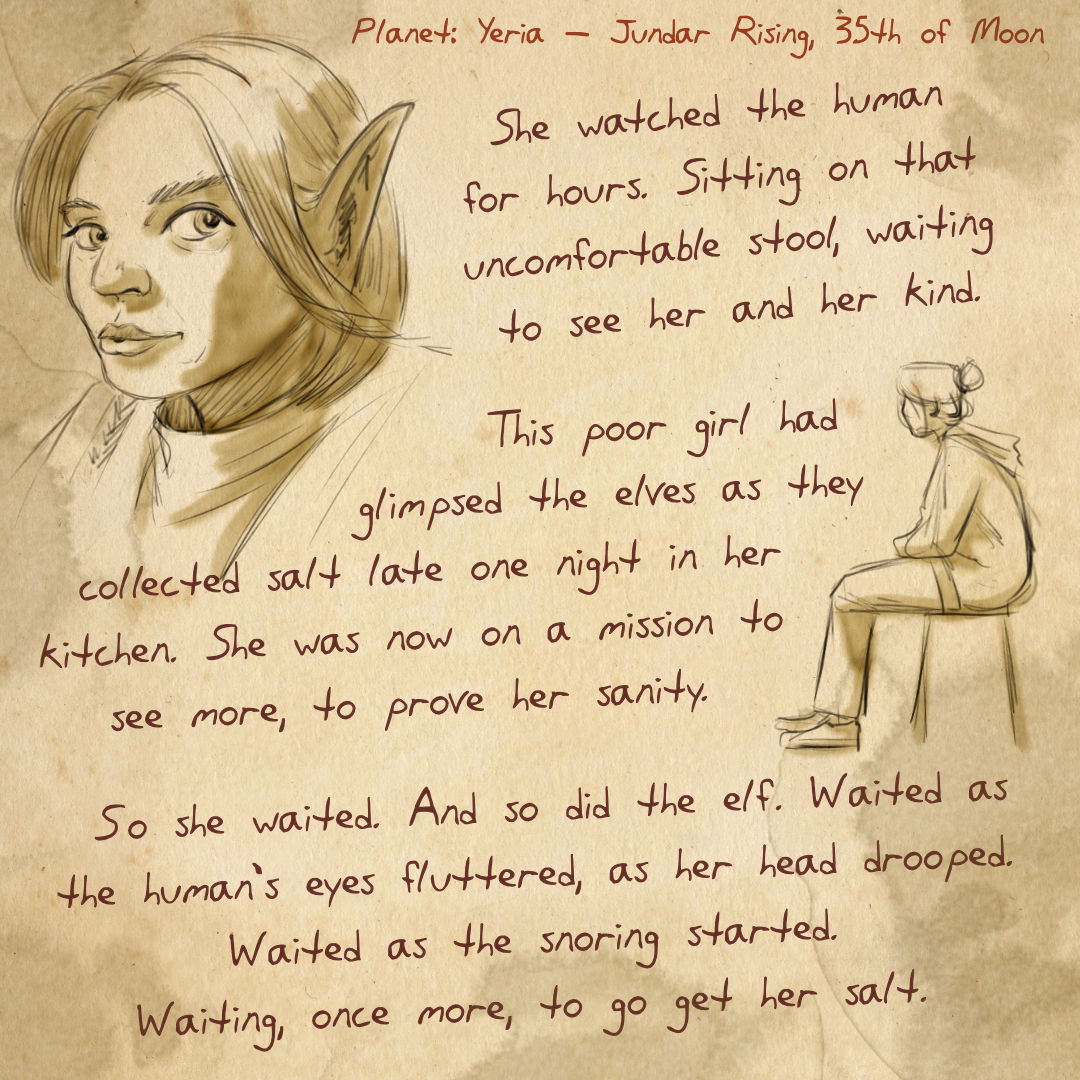 Planet: Yeria – Jundar Rising, 35th of Moon
She watched the human
for hours. Sitting on that
uncomfortable stool, waiting
to see her and her kind.
This poor girl had
glimpsed the elves as they
collected salt late one night in her
kitchen. She was now on a mission to
see more, to prove her sanity.
So she waited. And so did the elf. Waited as
the human's eyes fluttered, as her head drooped.
Waited as the snoring started.
Waiting, once more, to go get her salt.